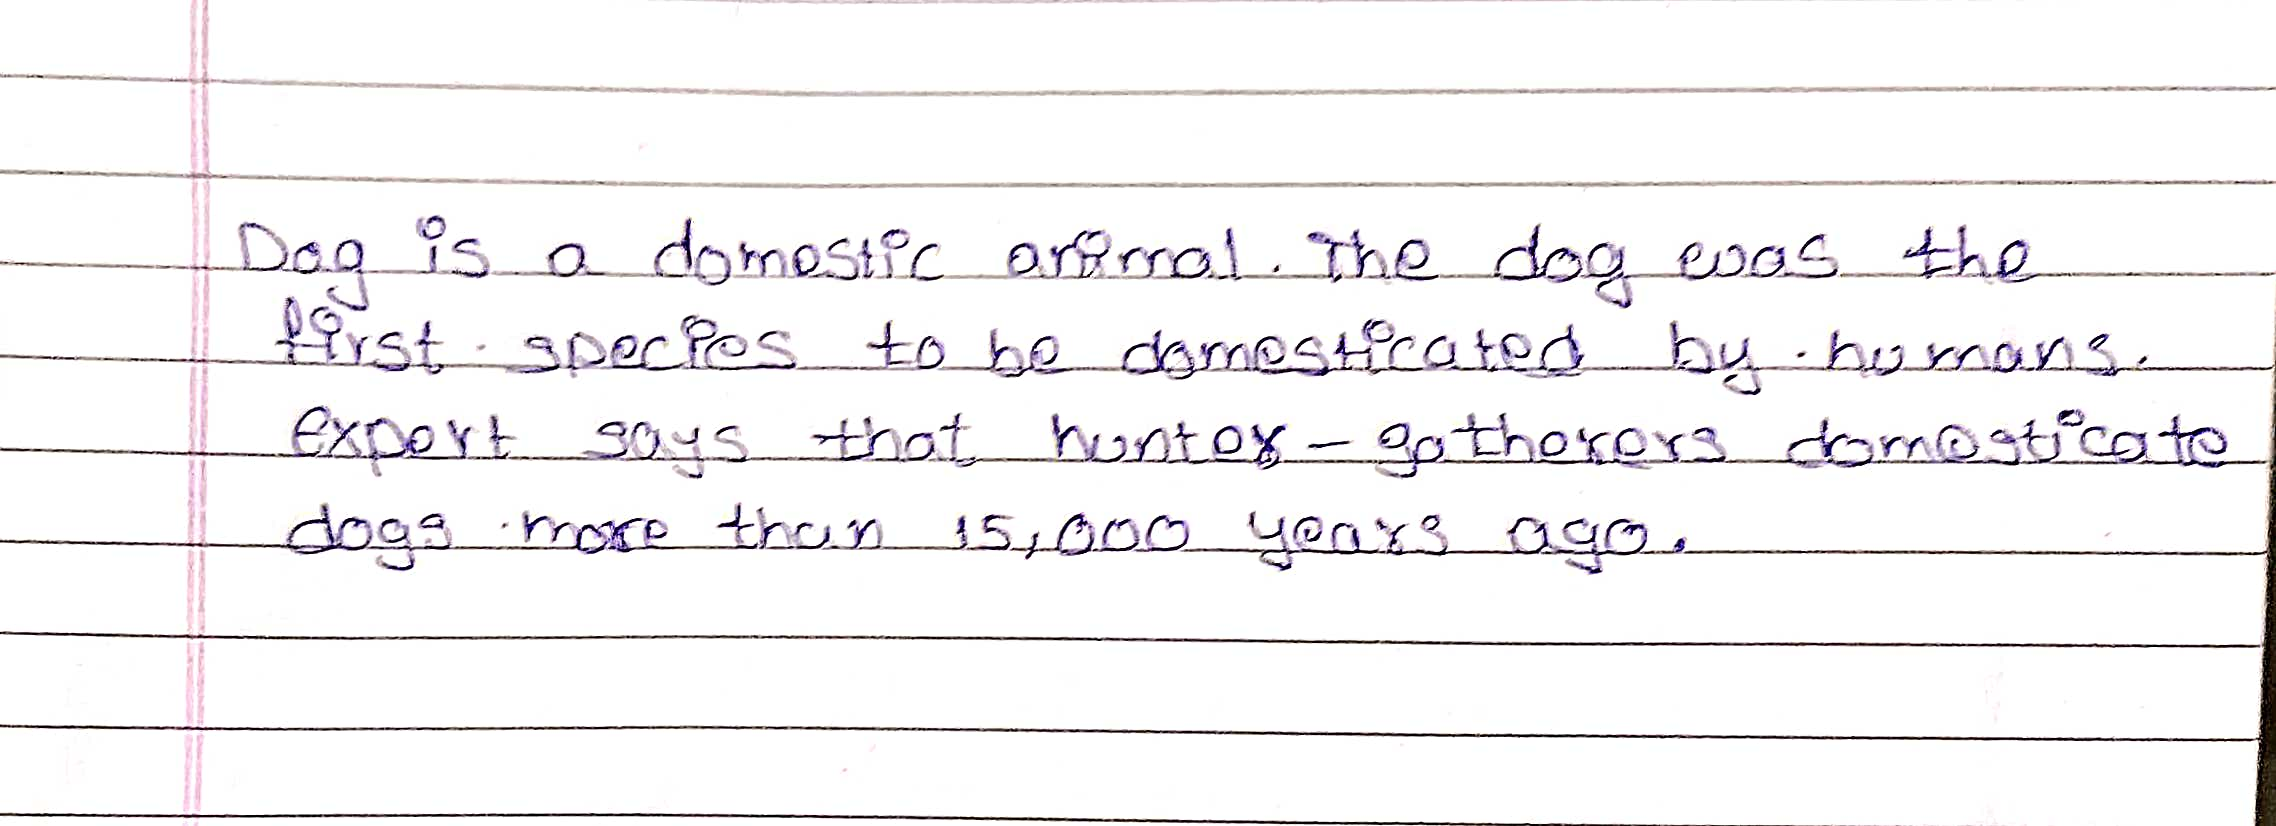 Dog is a domestic animal. The dog was the
first species to be domesticated by humans.
expert says that hunter-gatherers domesticate
dogs more than 15,000 years ago.